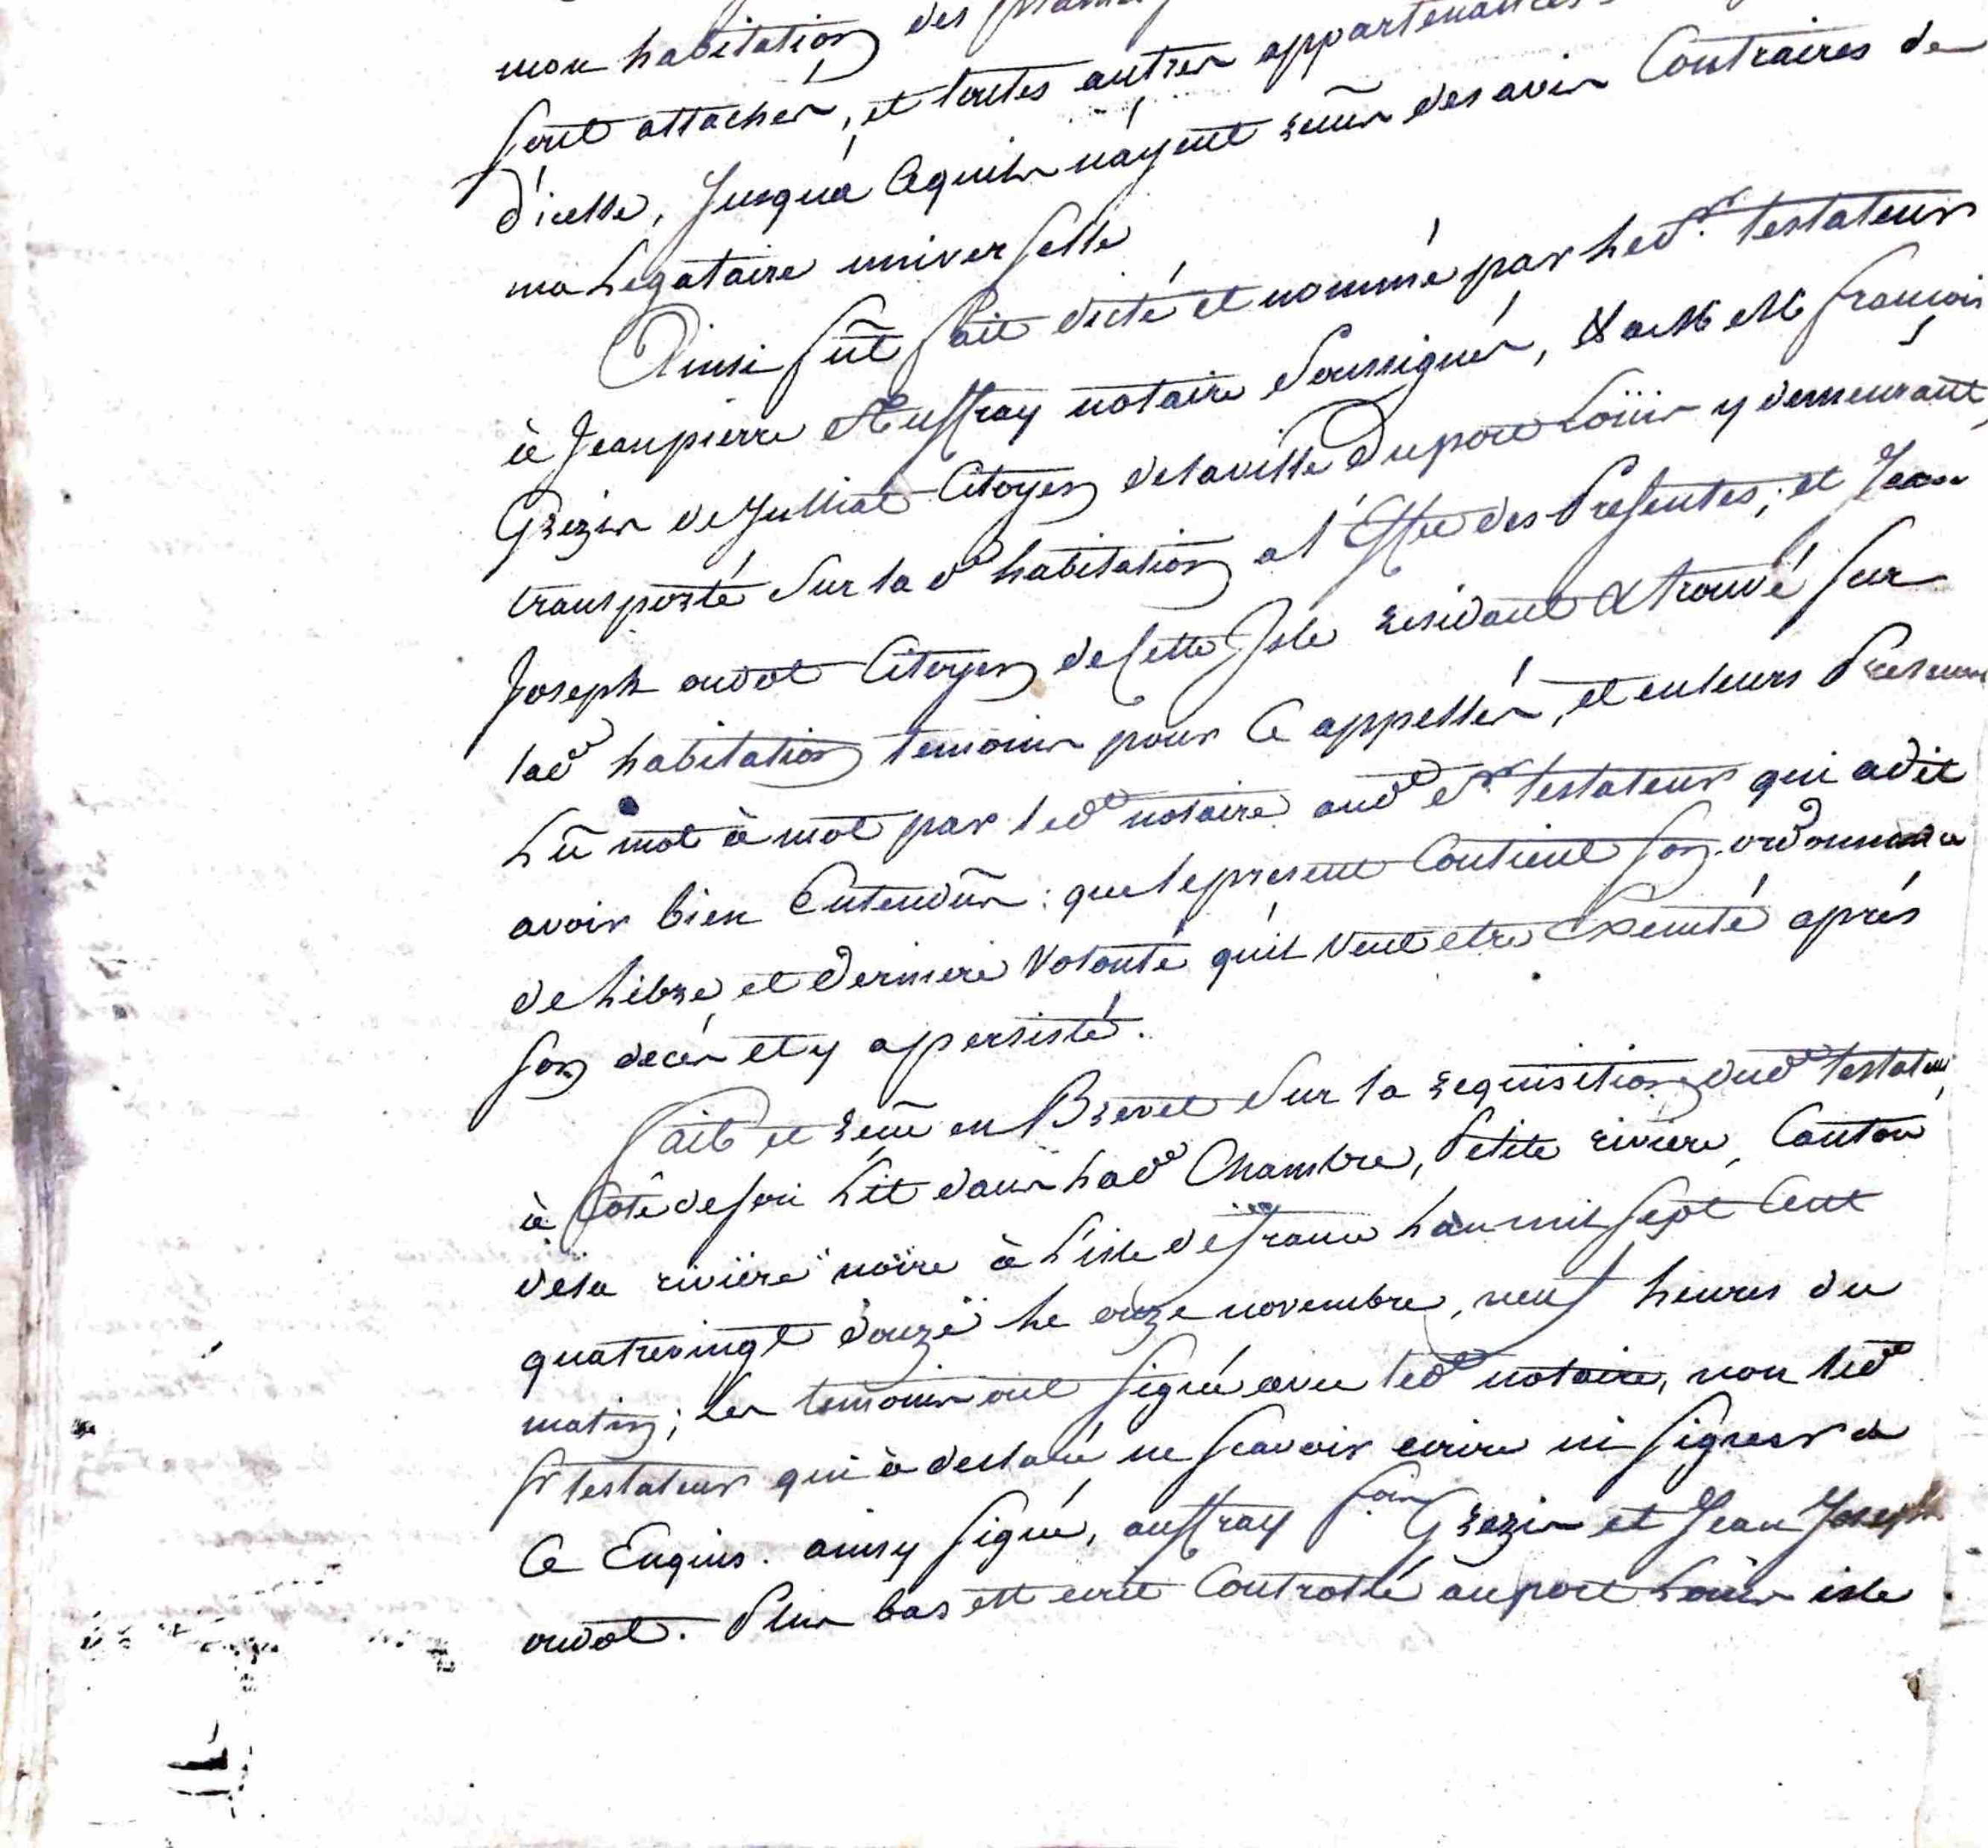 mon habitation des
sont attachés, et toutes autres appartenances
d'icelle, Jusqu'à cequils n'ayent reçus des avis Contraires de
ma Legataire universelle
Ainsi fût fait dicté et nommé par led. Sr. testateur
à Jean pierre Auffray notaire Soussigné, & a MM françois
Grezis de Julliat Citoyen delaville du port Loüis y demeurant,
transporté Sur lad.e habitation a l'Effet des Presentes; et Jean
Joseph oudot Citoyen de Cette Isle residant & trouvé sur
lad.e habitation temoins pour Ce appellés, et enleurs Presence
Lû mot à mot par led.t notaire aud.t Sr. testateur qui adit
avoir bien Entendus: que lepresent Contient son ordonnance
de Libre et Derniere Volonté qu'il Veut etre Executé aprés
son decés et y a persisté.
Fait et reçu en Brevet Sur la requisition dud.t testateur,
à Côté deson Lit dans Lad.e Chambre, Petite riviere, Canton
dela riviere noire à L'isle de france L'an mil sept Cent
quatrevingt douze le onze novembre, neuf heures du
matin; Les temoins ont signé avec led.t notaire, non led.t
Sr testateur qui à declaré ne scavoir ecrire ni signer de
Ce Enquis. ainsy signé, auffray f.ois Grezis et Jean Joseph
oudot. Plus bas est ecrit Controllé au port Loüis isle